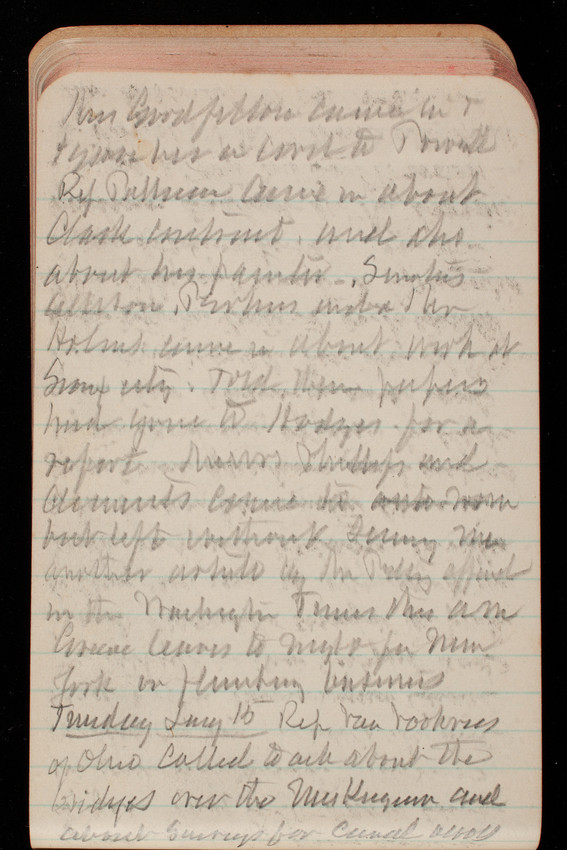 Mrs Goodfellow came in &
& gave her a card to Powell
Rep Pullman came in about
Clark contract and also
about his painter. Senators
Allison, Perkins and a Mr
Holmes came in about work at
Sioux city. Told them papers
had gone to Hodges for a
report. Messrs Phillips and
Clements came to ante-room
but left without seeing me
another article by the
in the Washington Times this a m
Greene leaves to night for New
York on plumbing business
Tuesday Jany 15 Rep Van Voorhees
of Ohio called to ask about the
bridges over the Muskingum and
about surveys for canal